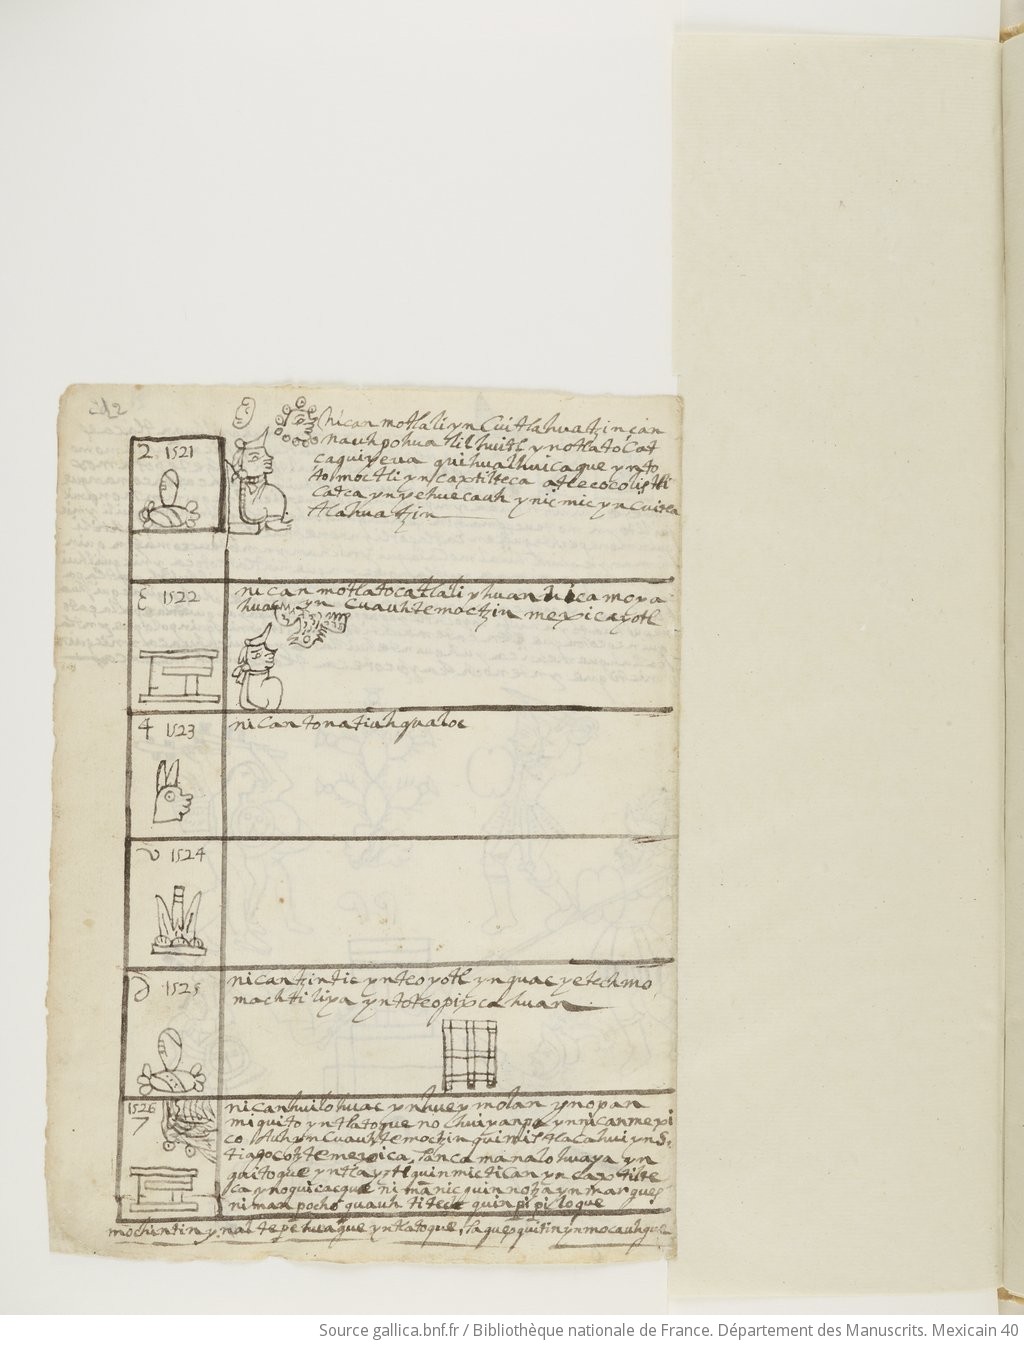 2 1521
nican motlali yn Cuitlahuatzin çan
nauhpohualilhuitl yn otlatocat
caquiyeua quihualhuicaque yn to
totomoctli yn caxtilteca
catca yn yehuecauh ynic mic yn Cuitla
tlahuatzin
3 1522
nican motlatocatlali yhuan nica moya
huac yn Cuauhtemoctzin mexicayotl
4 1523
nican tonatiuh qualoc
5 1524
6 1525
nican tzintic yn teoyotl yn quac ye techmo
machtiliya yn toteopixcahuan
1526
7
nican huilohuac yn hueymolan yn opan
miquito yn tlatoque no chuiyanpa yn nican mexi
co Auh yn Cuauhtemoctzin
quitoque yn tlayotl quinmictican yn caxtilte
ca yn oquicacque niman ic quinnotza yn marques
niman pochoquauhtitech quinpipiloque
mochintin yn altepehuaque yn tlatoque yn mocauhque
Source gallica.bnf.fr / Bibliothèque nationale de France. Département des Manuscrits. Mexicain 40